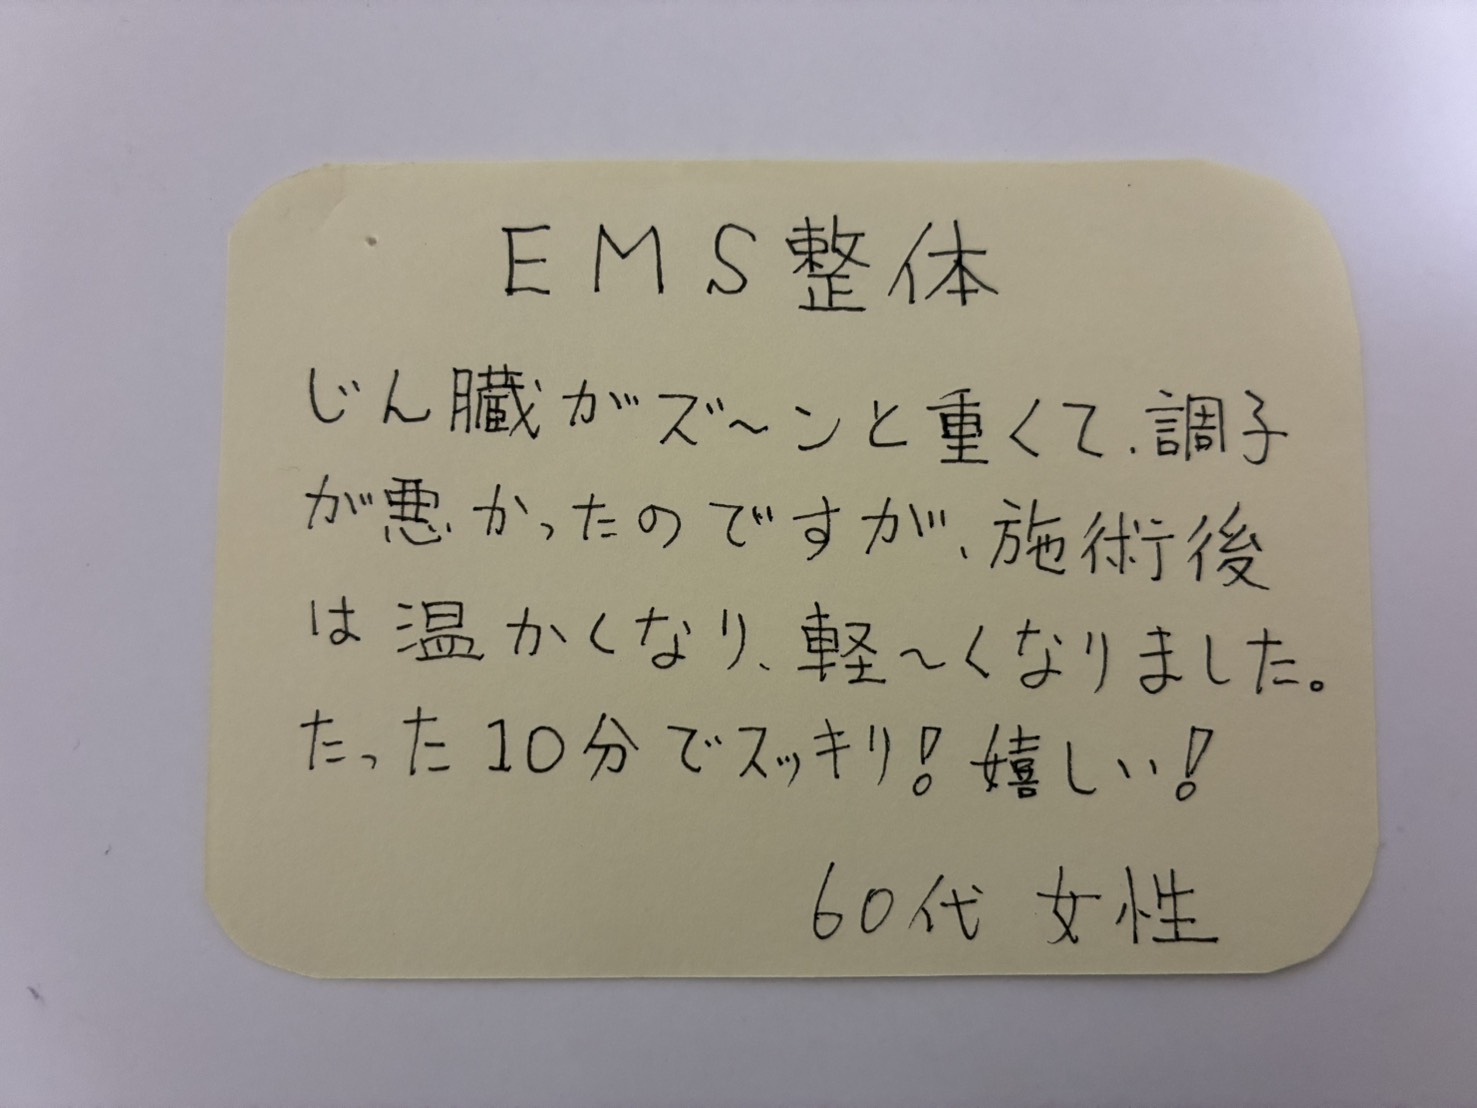 EMS整体
じん臓がズ〜ンと重くて、調子
が悪かったのですが、施術後
は温かくなり、軽〜くなりました。
たった10分でスッキリ!嬉しい!
60代 女性